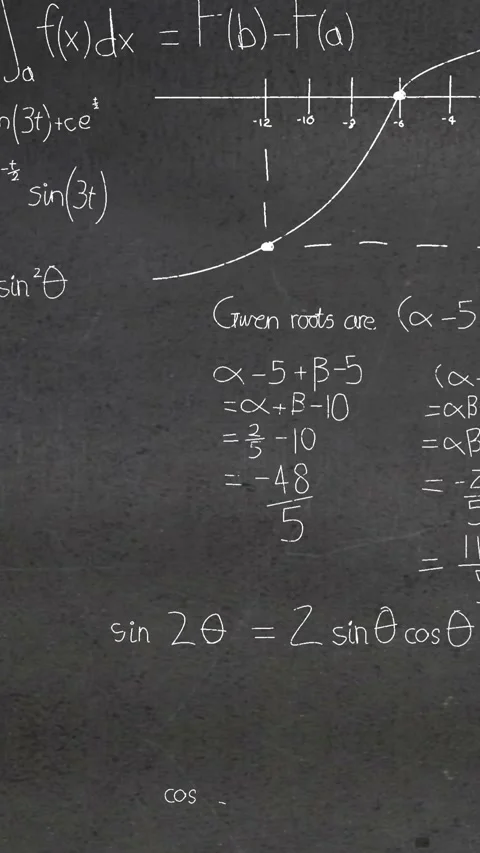 ∫a f(x)dx = F(b)-F(a)
n(3t)+ce^t/2
-t/2 sin(3t)
sin²θ
-12 -10 -8 -6 -4
Given roots are (α-5
α-5+β-5
=α+β-10
=2/5-10
=-48/5
(α-
=αβ
=αβ
=-2/5
=11
sin 2θ = 2 sinθcosθ
cos -